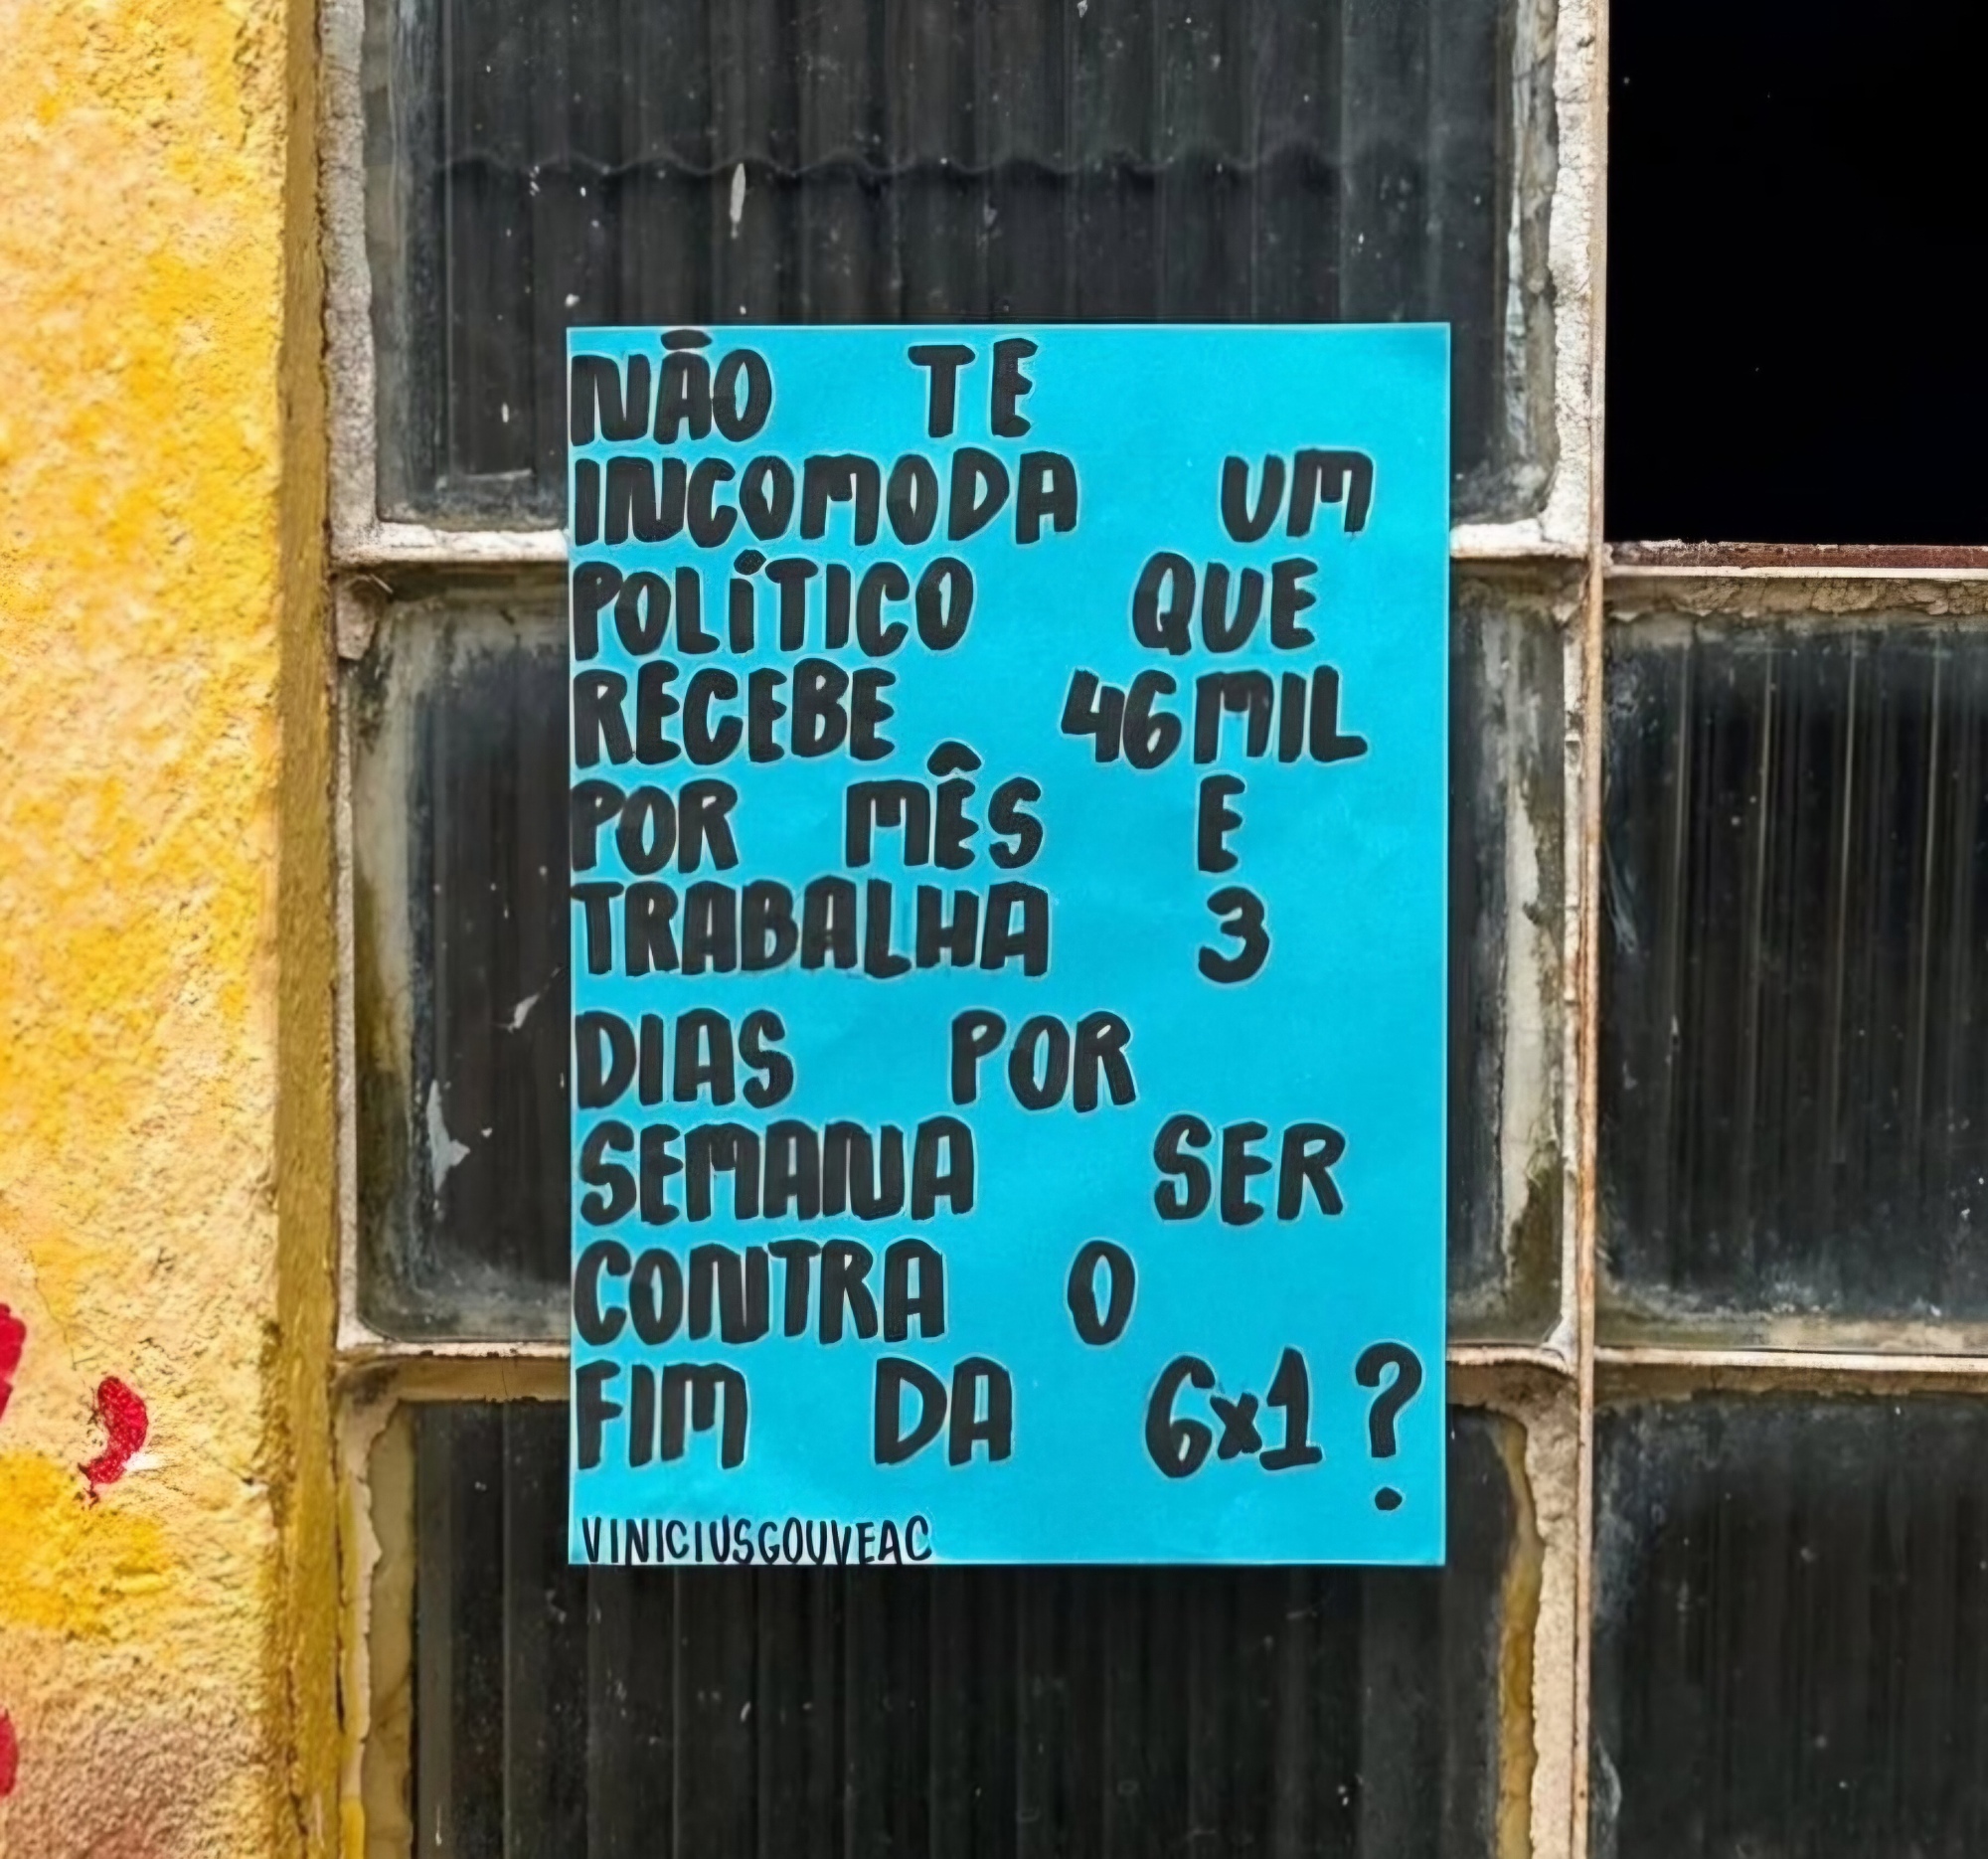 NÃO TE
INCOMODA UM
POLÍTICO QUE
RECEBE 46MIL
POR MÊS E
TRABALHA 3
DIAS POR
SEMANA SER
CONTRA O
FIM DA 6x1?
VINICIUSGOUVEAC